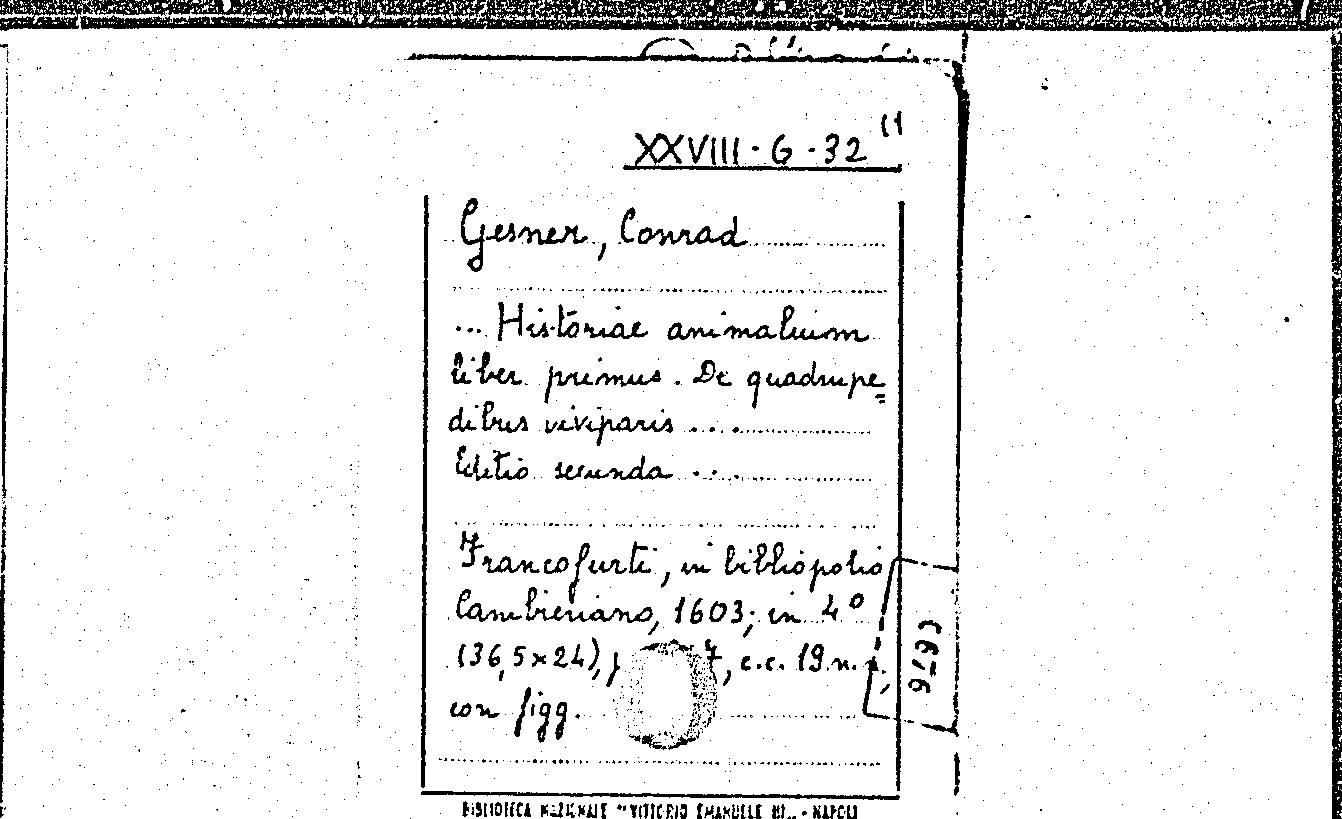 XXVIII · G · 32 (1
Gesner, Conrad
... Historiae animalium
liber primus. De quadrupe=
dibus viviparis ....
Editio secunda ...
Francofurti, in bibliopolio
Cambieriano, 1603; in 4º
(36,5x24), 7, c.c. 19 n.
con figg.
BIBLIOTECA NAZIONALE "VITTORIO EMANUELE III„ - NAPOLI